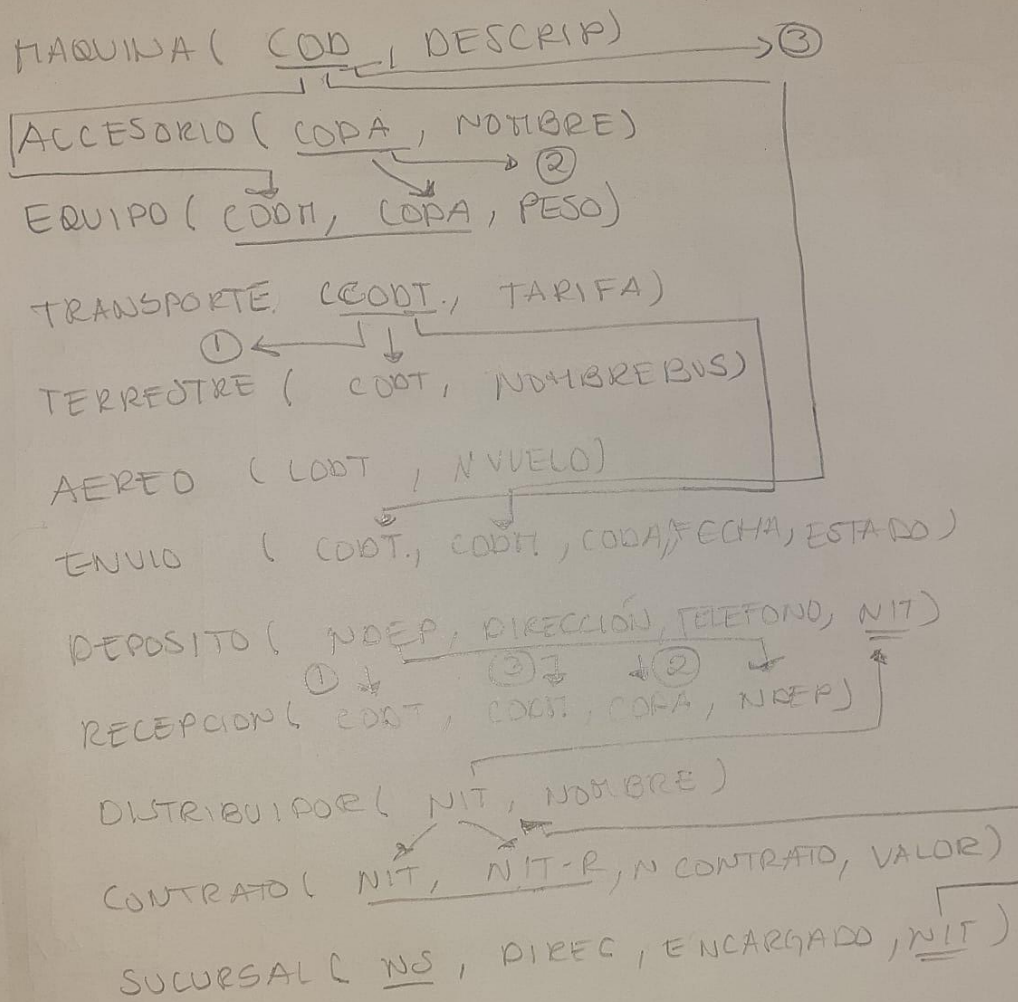 MAQUINA ( COD , DESCRIP) ③
ACCESORIO ( CODA , NOMBRE)
②
EQUIPO ( CODM, CODA, PESO)
TRANSPORTE (CODT., TARIFA)
①
TERRESTRE ( CODT, NOMBREBUS)
AEREO ( CODT , NVUELO)
ENVIO ( CODT., CODM, CODA, FECHA, ESTADO)
DEPOSITO ( NDEP, DIRECCIÓN, TELEFONO, NIT)
① ③ ②
RECEPCION ( CODT, CODM, CODA, NDEP)
DISTRIBUIDOR ( NIT, NOMBRE )
CONTRATO ( NIT, NIT-R, N CONTRATO, VALOR)
SUCURSAL ( NS , DIREC , ENCARGADO , NIT )